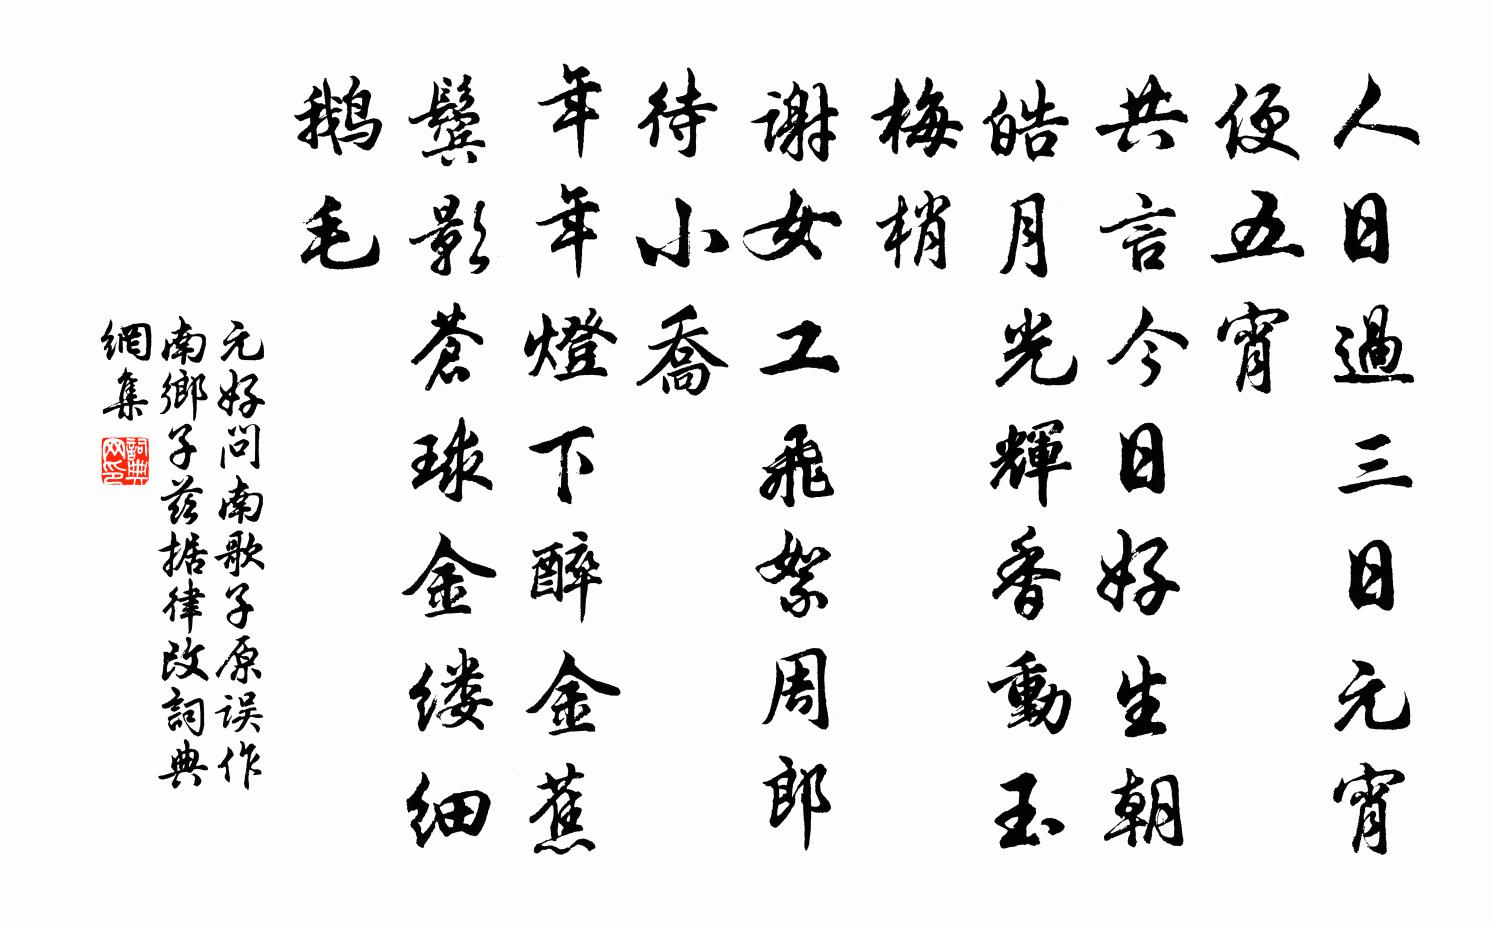 人日過三日元宵
便五宵
共言今日好生朝
皓月光輝香動玉
梅梢
謝女工飛絮周郎
待小喬
年年燈下醉金蕉
鬢影蒼球金缕细
鹅毛
元好问南歌子原误作
南鄉子兹据律改詞典
網集
詞典
网印